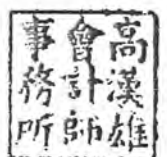 高漢雄
會計師
事務所